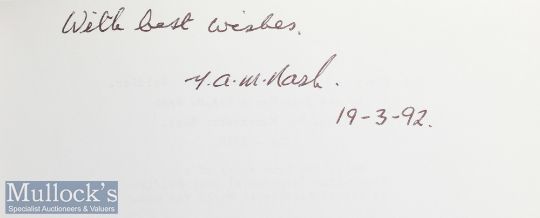 With best wishes.
Y.A.M.Nash.
19-3-92.
Mullock's
Specialist Auctioneers & Valuers